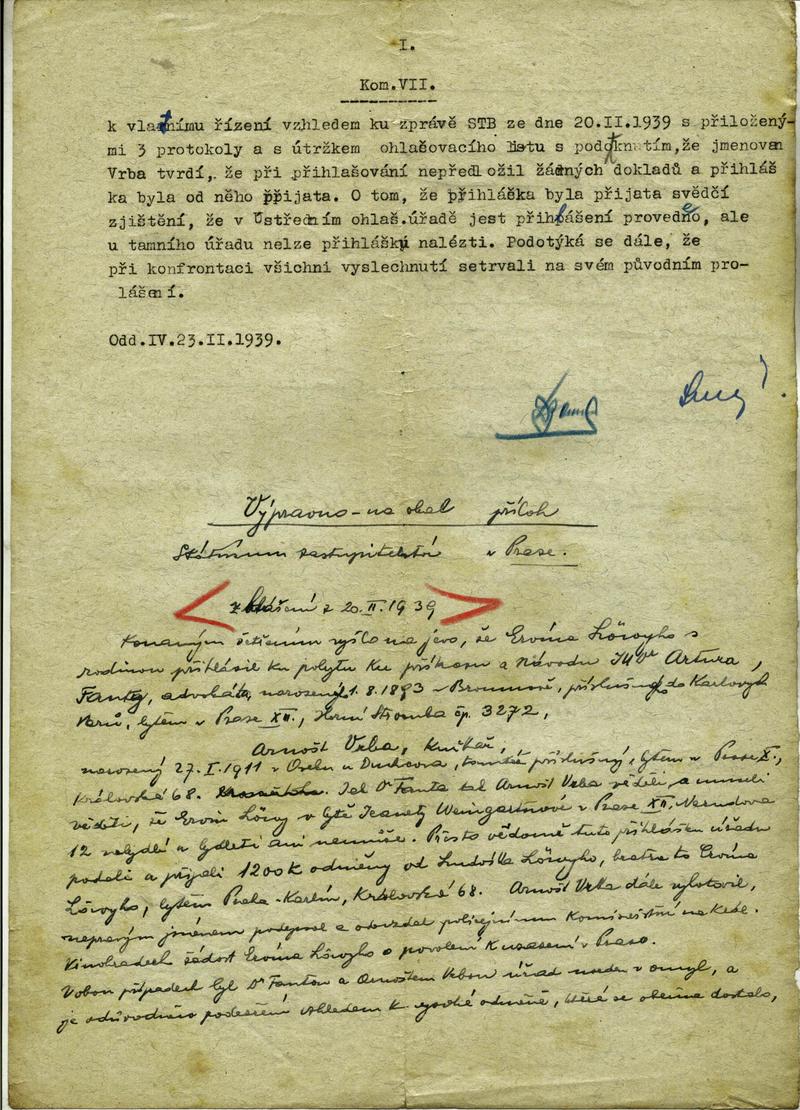 I.
Kom.VII.
k vlastnímu řízení vzhledem ku zprávě STB ze dne 20.II.1939 s přiložený-
mi 3 protokoly a s útržkem ohlašovacího listu s podotknutím, že jmenovan
Vrba tvrdí, že při přihlašování nepředložil žádných dokladů a přihláš
ka byla od něho přijata. O tom, že přihláška byla přijata svědčí
zjištění, že v Ústředním ohlaš.úřadě jest přihlášení provedeno, ale
u tamního úřadu nelze přihlášku nalézti. Podotýká se dále, že
při konfrontaci všichni vyslechnutí setrvali na svém původním pro-
lášení.
Odd.IV.23.II.1939.
Výpravno - na obal příloh
Státnímu zastupitelství v Praze.
z hlášení z 20.II.1939
Konaným šetřením vyšlo na jevo, že Ervína Löwyho s
rodinou přihlásil ku pobytu ku příkazu a návodu JUDr Artura
Fanty, advokáta, narozený 1.8.1893 v Broumově, příslušný do Karlových
Varů, bytem v Praze XII., Horní Stromka čp. 3272,
Arnošt Vrba, knihař,
narozený 27.I.1911 v Oseku u Duchcova, tamtéž příslušný, bytem v Praze X.,
Královská 68. Jak Dr Fanta tak Arnošt Vrba věděli, a museli
věděti, že Ervín Löwy v bytě Jeanety Weingartnové v Praze XII, Nerudova
12 nebydlí a bydleti ani nemůže. Přesto vědomě tuto přihlášku úřadu
podali a přijali 1200 K odměny od Ludvíka Löwyho, bratra to Ervína
Löwyho, bytem Praha-Karlín, Královská 68. Arnošt Vrba dále vyhotovil,
nepravým jménem podepsal a odevzdal policejnímu komisařství na Král.
Vinohradech žádost Ervína Löwyho o povolení k usazení v Praze.
V obou případech byl Dr Fantou a Arnoštem Vrbou úřad uveden v omyl, a
je odůvodněno podezření vzhledem k vysoké odměně, které se oběma dostalo,